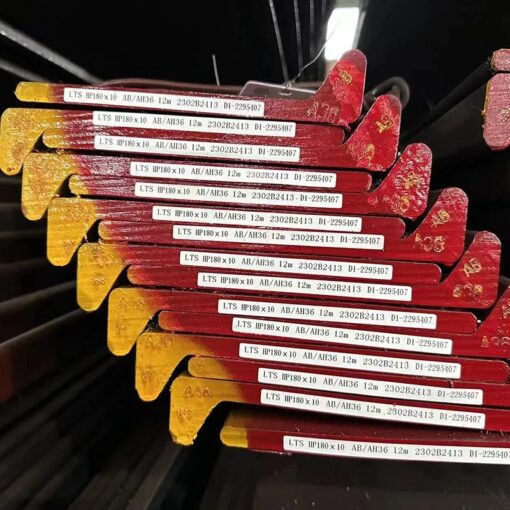 LTS HP180×10 AB/AH36 12m 2302B2413 D1-2295407
LTS HP180×10 AB/AH36 12m 2302B2413 D1-2295407
LTS HP180×10 AB/AH36 12m 2302B2413 D1-2295407
LTS HP180×10 AB/AH36 12m 2302B2413 D1-2295407
LTS HP180×10 AB/AH36 12m 2302B2413 D1-2295407
LTS HP180×10 AB/AH36 12m 2302B2413 D1-2295407
LTS HP180×10 AB/AH36 12m 2302B2413 D1-2295407
LTS HP180×10 AB/AH36 12m 2302B2413 D1-2295407
LTS HP180×10 AB/AH36 12m 2302B2413 D1-2295407
LTS HP180×10 AB/AH36 12m 2302B2413 D1-2295407
LTS HP180×10 AB/AH36 12m 2302B2413 D1-2295407
LTS HP180×10 AB/AH36 12m 2302B2413 D1-2295407
LTS HP180×10 AB/AH36 12m 2302B2413 D1-2295407
LTS HP180×10 AB/AH36 12m 2302B2413 D1-2295407
LTS HP180×10 AB/AH36 12m 2302B2413 D1-2295407